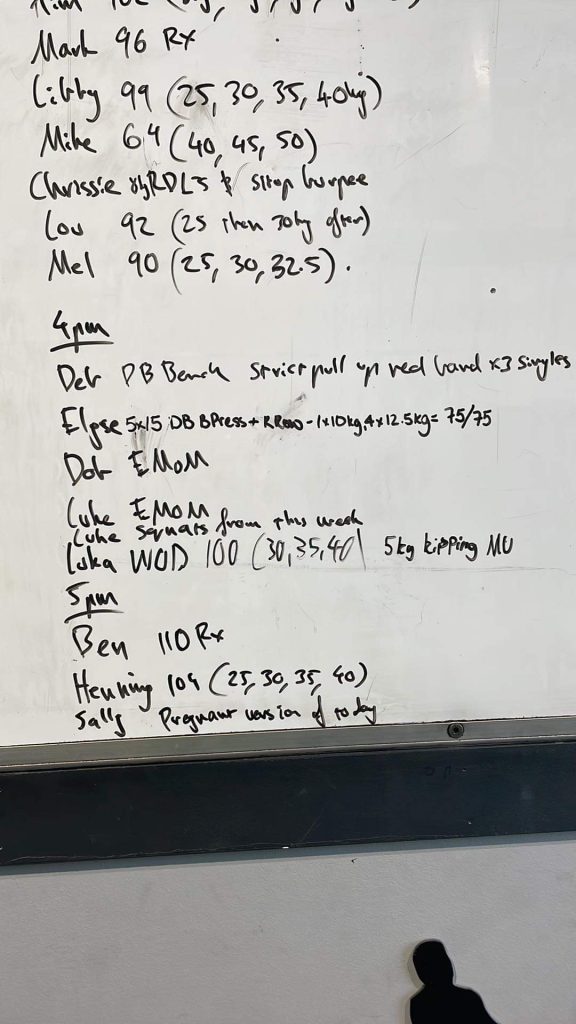 Mark 96 Rx
Libby 99 (25, 30, 35, 40kg)
Mike 64 (40, 45, 50)
Chrissie RDLs & situp burpee
Lou 92 (25 then 30kg after)
Mel 90 (25, 30, 32.5).
4pm
Deb DB Bench strict pull up red band x3 singles
Elpse 5x15 DB BPress + RRow - 1x10kg, 4x12.5kg = 75/75
Dob EMoM
Luke EMOM
Luke squats from this week
Luka WOD 100 (30, 35, 40) 5kg kipping MU
5pm
Ben 110 Rx
Henning 104 (25, 30, 35, 40)
Sally Pregnant version of today